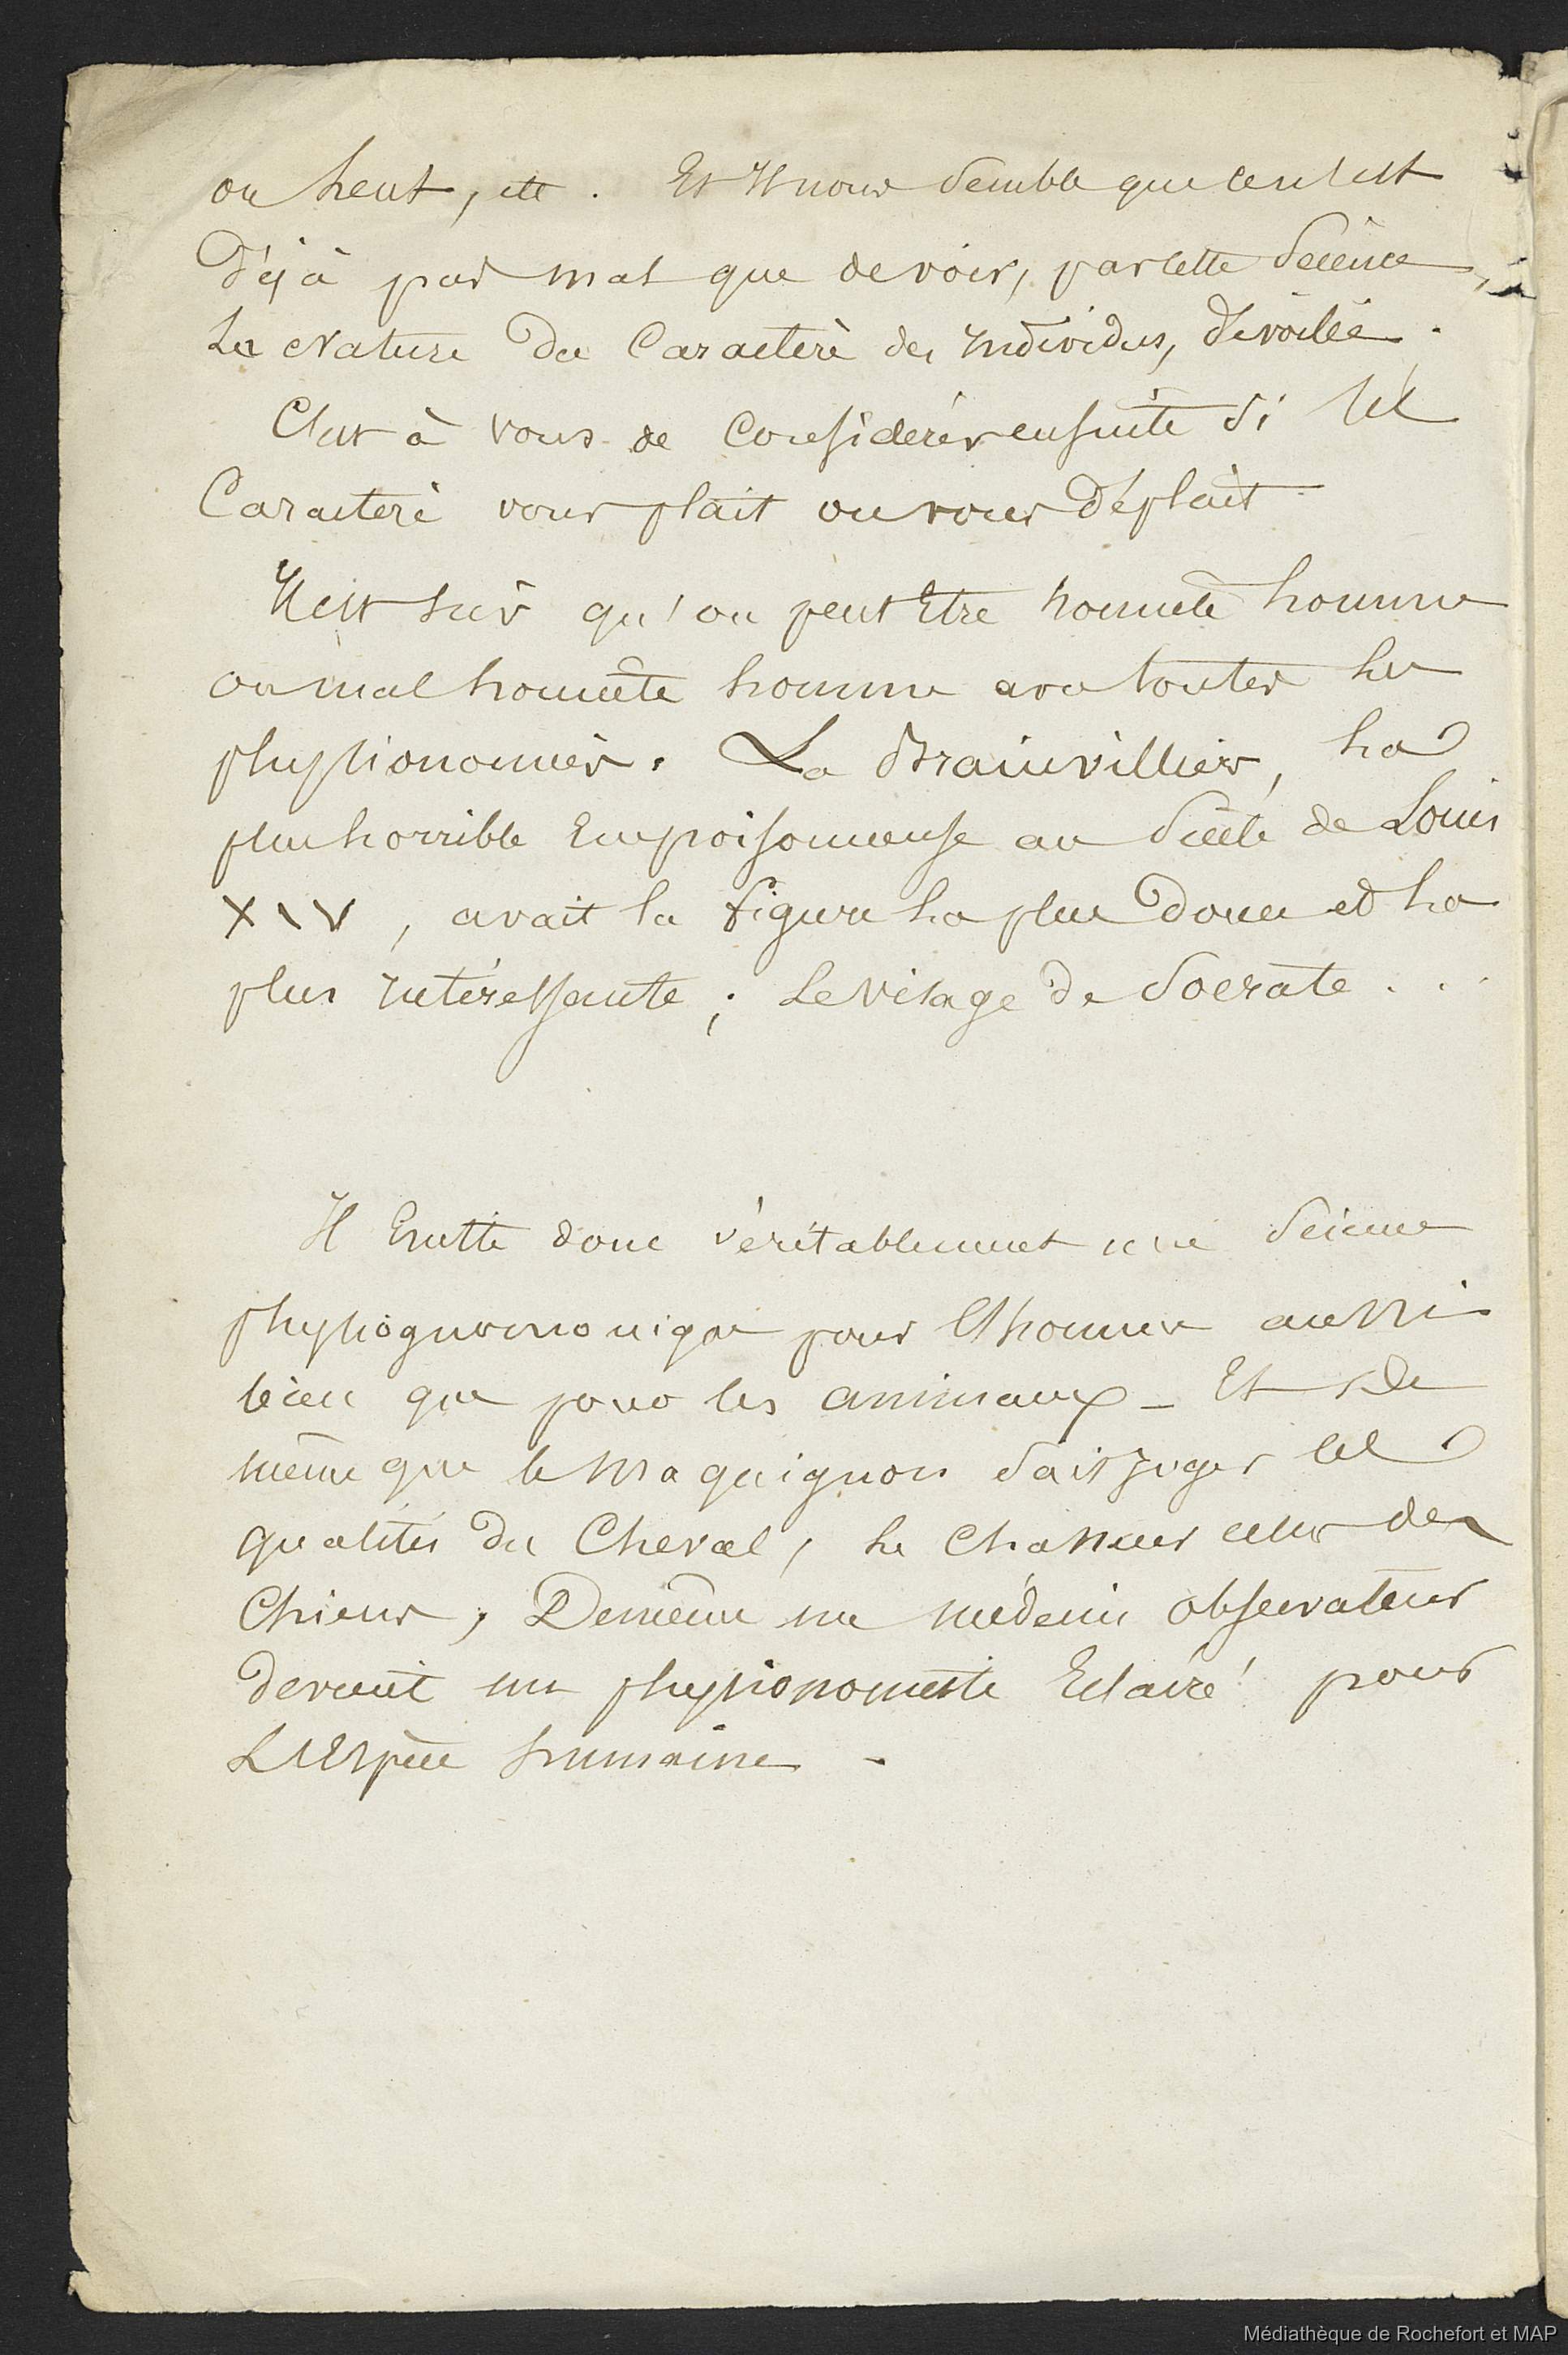 ou lent, etc. Et Il nous Semble que ce n'est
Déjà pas mal que de voir, par cette Science,
La Nature du Caractère des Individus, dévoilée.
C'est à vous de Considérer ensuite Si tel
Caractère vous plait ou vous déplait
Il est sûr qu'on peut Etre honnête homme
ou mal honnête homme avec toutes les
physionomies. La Brainvillier, la
plus horrible Empoisonneuse au Siècle de Louis
XIV, avait la figure la plus douce et la
plus Intéressante ; Le visage de Socrate . . .
Il Existe donc véritablement une Science
physiognomonique pour l'homme aussi
bien que pour les animaux _ Et de
même que le Maquignon Sait Juger les
qualités du Cheval, le Chasseur celles des
Chiens, De même un médecin observateur
devient un physionomiste Eclairé pour
L'Espèce humaine -
Médiathèque de Rochefort et MAP